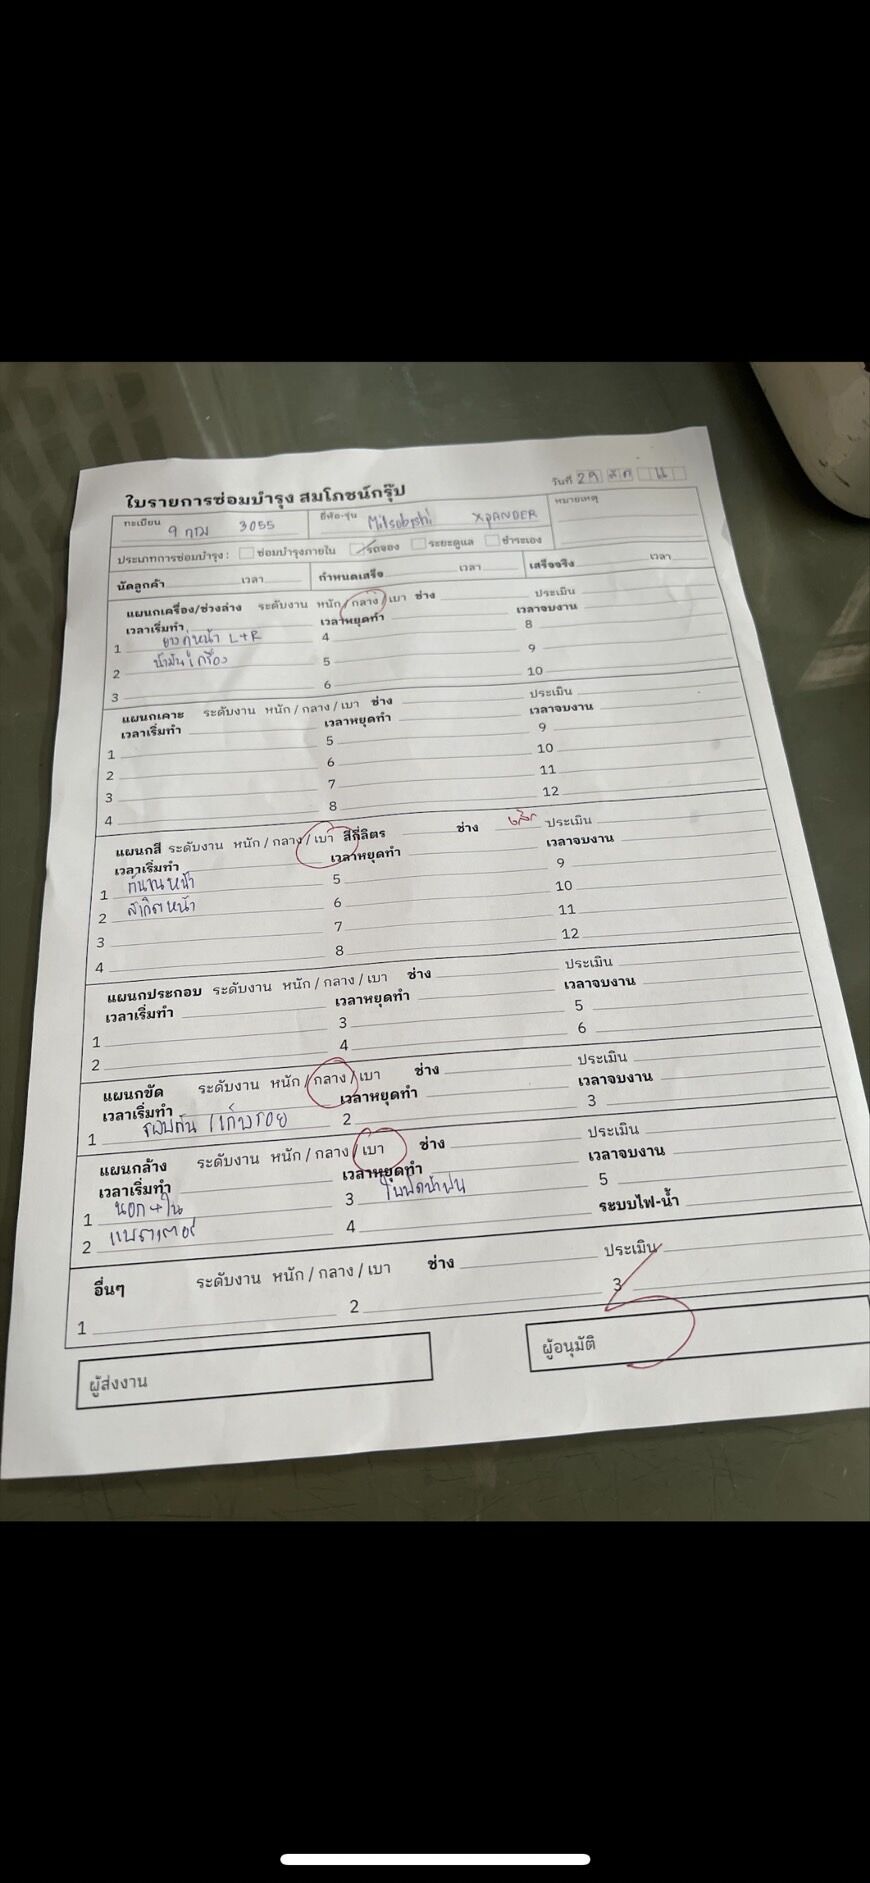 ใบรายการซ่อมบำรุง สมโภชน์กรุ๊ป
วันที่ 29
ทะเบียน 9 กฌ 3055 ยี่ห้อ-รุ่น Mitsubishi XPANDER หมายเหตุ
ประเภทการซ่อมบำรุง : ซ่อมบำรุงภายใน รถจอง ระยะดูแล ชำระเอง
นัดลูกค้า เวลา กำหนดเสร็จ เวลา เสร็จจริง เวลา
แผนกเครื่อง/ช่วงล่าง ระดับงาน หนัก / กลาง / เบา ช่าง ประเมิน
เวลาเริ่มทำ เวลาหยุดทำ เวลาจบงาน
1 ยางคู่หน้า L+R 4 8
2 น้ำมันเครื่อง 5 9
3 6 10
แผนกเคาะ ระดับงาน หนัก / กลาง / เบา ช่าง ประเมิน
เวลาเริ่มทำ เวลาหยุดทำ เวลาจบงาน
1 5 9
2 6 10
3 7 11
4 8 12
แผนกสี ระดับงาน หนัก / กลาง / เบา สีกี่ลิตร ช่าง ประเมิน
เวลาเริ่มทำ เวลาหยุดทำ เวลาจบงาน
1 กันชนหน้า 5 9
2 สเกิตหน้า 6 10
3 7 11
4 8 12
แผนกประกอบ ระดับงาน หนัก / กลาง / เบา ช่าง ประเมิน
เวลาเริ่มทำ เวลาหยุดทำ เวลาจบงาน
1 3 5
2 4 6
แผนกขัด ระดับงาน หนัก / กลาง / เบา ช่าง ประเมิน
เวลาเริ่มทำ เวลาหยุดทำ เวลาจบงาน
1 เก็บรอย 2 3
แผนกล้าง ระดับงาน หนัก / กลาง / เบา ช่าง ประเมิน
เวลาเริ่มทำ เวลาหยุดทำ เวลาจบงาน
1 นอก+ใน 3 ใบปัดน้ำฝน 5
2 แบตเตอรี่ 4 ระบบไฟ-น้ำ
อื่นๆ ระดับงาน หนัก / กลาง / เบา ช่าง ประเมิน
1 2 3
ผู้ส่งงาน ผู้อนุมัติ